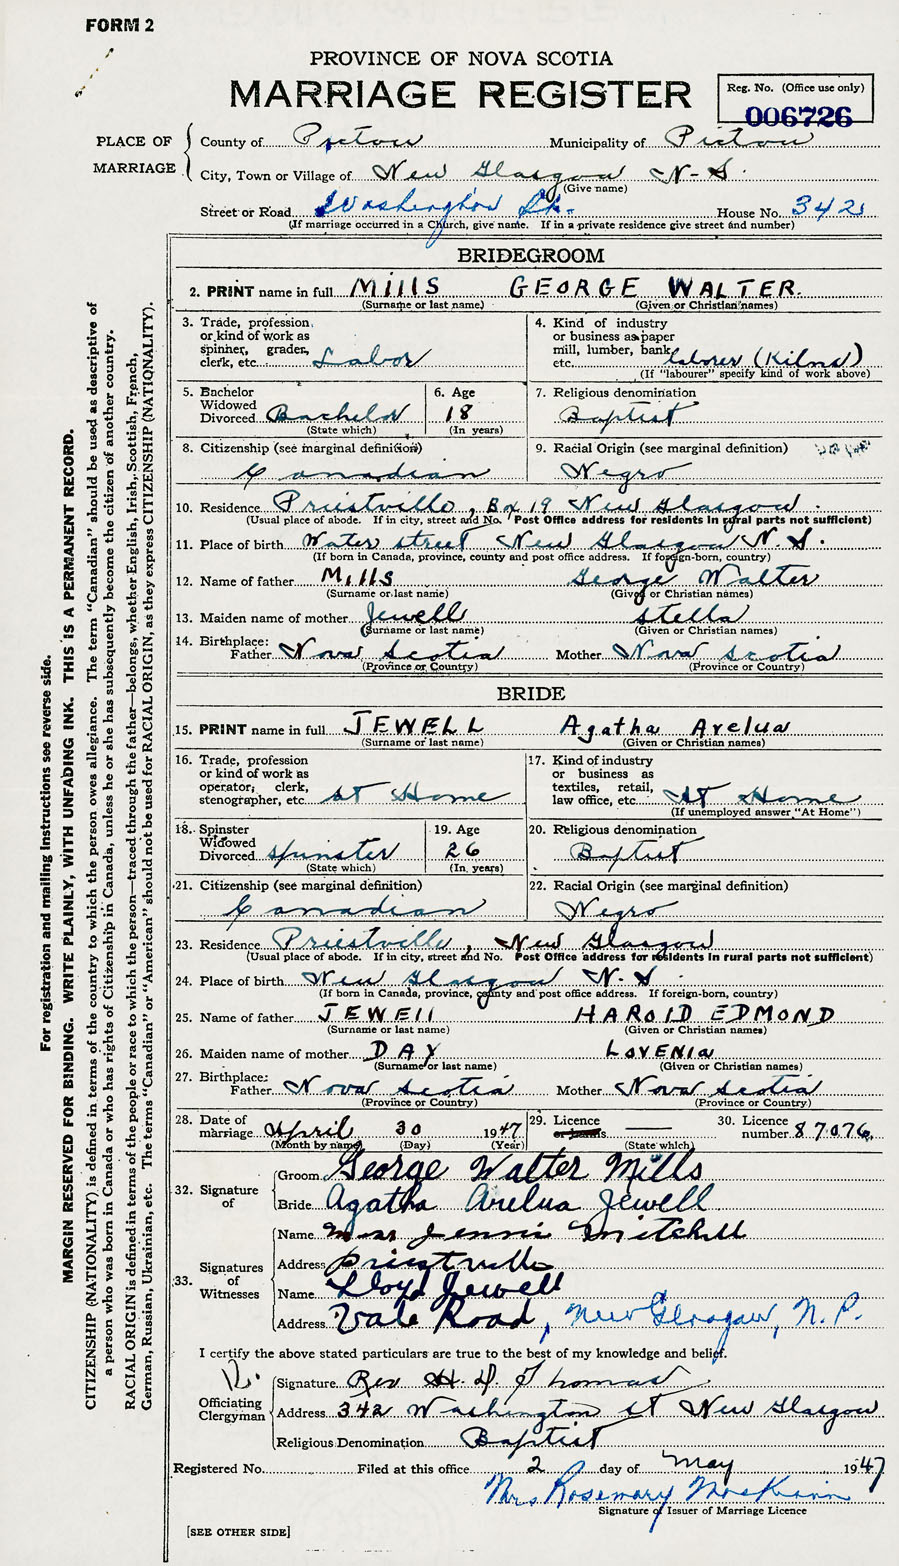 FORM 2
PROVINCE OF NOVA SCOTIA
MARRIAGE REGISTER
Reg. No. (Office use only)
006726
PLACE OF MARRIAGE
County of Pictou Municipality of Pictou
City, Town or Village of New Glasgow N-S.
(Give name)
Street or Road Washington St. House No. 342
(If marriage occurred in a Church, give name. If in a private residence give street and number)
BRIDEGROOM
2. PRINT name in full MIllS GEORGE WALTER.
(Surname or last name) (Given or Christian names)
3. Trade, profession or kind of work as spinner, grader, clerk, etc. Labor
4. Kind of industry or business as paper mill, lumber, bank, etc. laborer
(If "labourer" specify kind of work above)
5. Bachelor Widowed Divorced Bachelor
(State which)
6. Age 18
(In years)
7. Religious denomination Baptist
8. Citizenship (see marginal definition) Canadian
9. Racial Origin (see marginal definition) Negro
10. Residence Priestville, Bx 19 New Glasgow.
(Usual place of abode. If in city, street and No. Post Office address for residents in rural parts not sufficient)
11. Place of birth Water street New Glasgow N. S.
(If born in Canada, province, county and post office address. If foreign-born, country)
12. Name of father Mills George Walter
(Surname or last name) (Given or Christian names)
13. Maiden name of mother Jewell Stella
(Surname or last name) (Given or Christian names)
14. Birthplace:
Father Nova Scotia Mother Nova Scotia
(Province or Country) (Province or Country)
BRIDE
15. PRINT name in full JEWELL Agatha Arelua
(Surname or last name) (Given or Christian names)
16. Trade, profession or kind of work as operator, clerk, stenographer, etc. At Home
17. Kind of industry or business as textiles, retail, law office, etc. At Home
(If unemployed answer "At Home")
18. Spinster Widowed Divorced Spinster
(State which)
19. Age 26
(In years)
20. Religious denomination Baptist
21. Citizenship (see marginal definition) Canadian
22. Racial Origin (see marginal definition) Negro
23. Residence Priestville, New Glasgow
(Usual place of abode. If in city, street and No. Post Office address for residents in rural parts not sufficient)
24. Place of birth New Glasgow N. S.
(If born in Canada, province, county and post office address. If foreign-born, country)
25. Name of father JEWEll HAROlD EDMOND
(Surname or last name) (Given or Christian names)
26. Maiden name of mother DAY LOVENIA
(Surname or last name) (Given or Christian names)
27. Birthplace:
Father Nova Scotia Mother Nova Scotia
(Province or Country) (Province or Country)
28. Date of marriage April 30 1947
(Month by name) (Day) (Year)
29. Licence
(State which)
30. Licence number 87076
32. Signature of
Groom George Walter Mills
Bride Agatha Arelua Jewell
33. Signatures of Witnesses
Name Mrs Jennie Mitchell
Address Priestville
Name Lloyd Jewell
Address Vale Road, New Glasgow, N. S.
I certify the above stated particulars are true to the best of my knowledge and belief.
Officiating Clergyman
Signature Rev H. D. Thomas
Address 342 Washington st New Glasgow
Religious Denomination Baptist
Registered No. Filed at this office 2 day of May 1947
Mrs Rosemary MacKinn
Signature of Issuer of Marriage Licence
[SEE OTHER SIDE]
For registration and mailing instructions see reverse side.
MARGIN RESERVED FOR BINDING. WRITE PLAINLY, WITH UNFADING INK. THIS IS A PERMANENT RECORD.
CITIZENSHIP (NATIONALITY) is defined in terms of the country to which the person owes allegiance. The term "Canadian" should be used as descriptive of
a person who was born in Canada or who has rights of Citizenship in Canada, unless he or she has subsequently become the citizen of another country.
RACIAL ORIGIN is defined in terms of the people or race to which the person—traced through the father—belongs, whether English, Irish, Scottish, French,
German, Russian, Ukrainian, etc. The terms "Canadian" or "American" should not be used for RACIAL ORIGIN, as they express CITIZENSHIP (NATIONALITY).